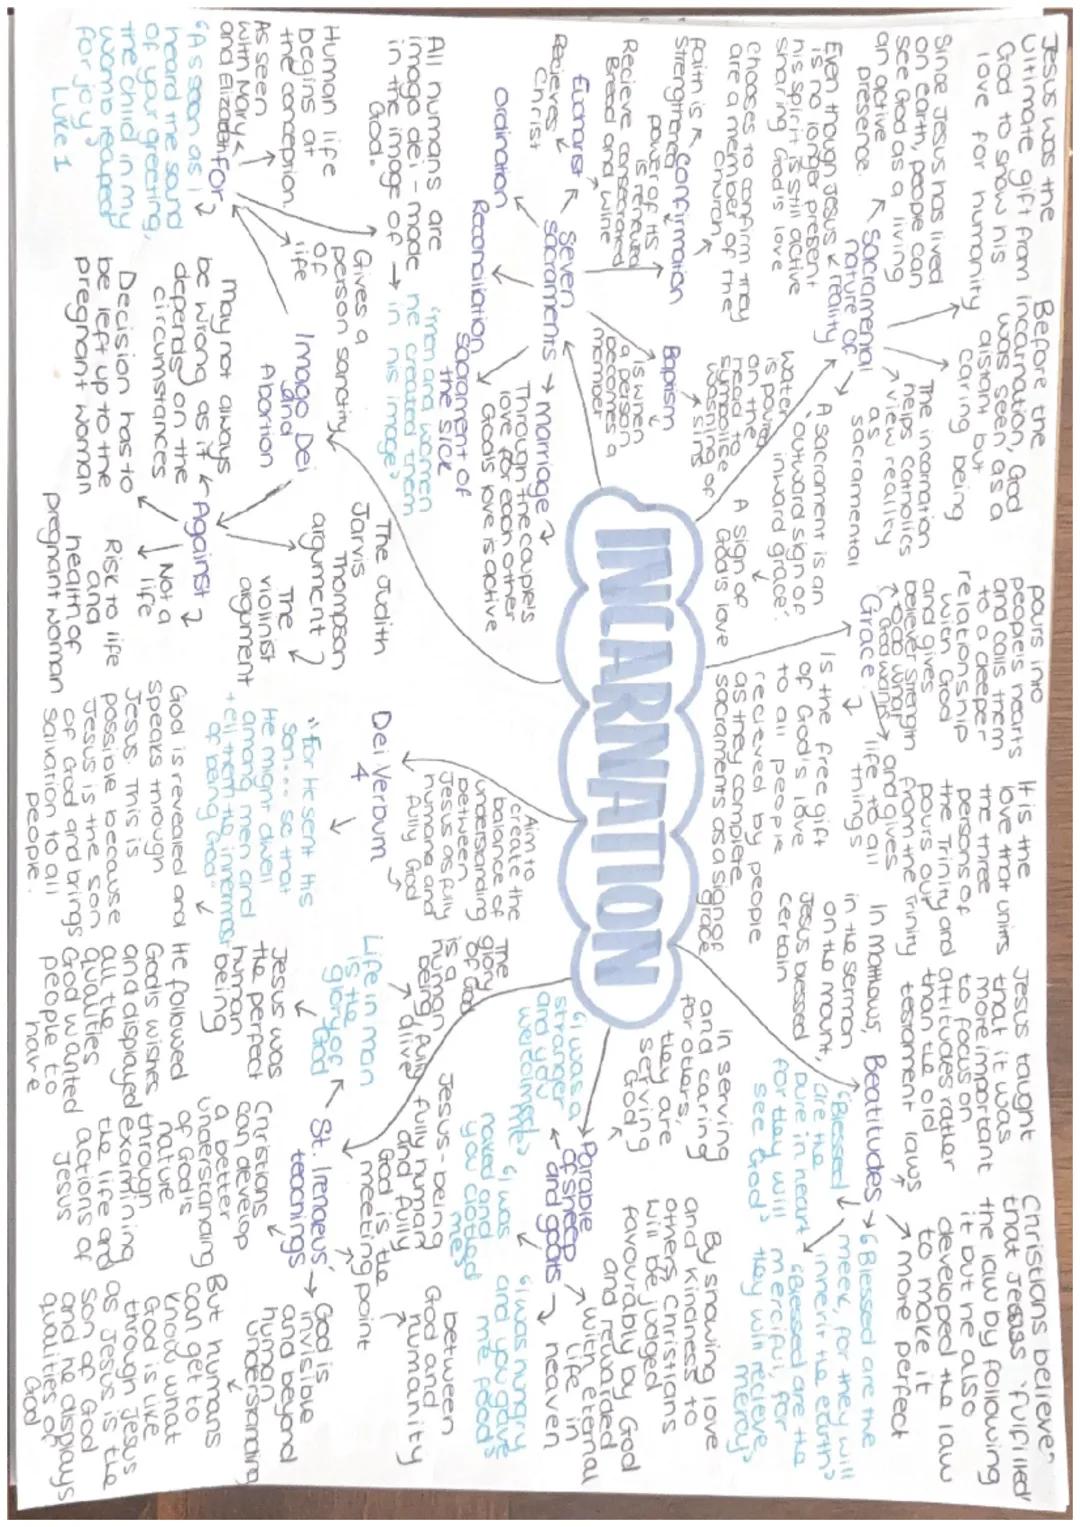 INCARNATION
Jesus was the
ultimate gift from
God to show his
love for humanity
Before the
incarnation, God
was seen as a
distant but
caring being
Since Jesus has lived
on earth, people can
see God as a living
an active
presence.
Sacramental
nature of
reality
The incarnation
helps catholics
view reality
as
sacramental
Even though Jesus
is no longer present
his spirit is still active
sharing God's love
A sacrament is an
'outward sign of
inward grace'.
A sign of
God's love
Seven
sacraments
Baptism
is when
a person
becomes a
member
water
is poured
on the
head to
symbolise
washing of
sin
Confirmation
chooses to confirm they
are a member of the
church
faith is
strengthened
power of its
is renewed
Eucharist
Recieve consecrated
Bread and wine
Recieves
Christ
Ordination
Reconciliation
Sacrament of
the sick
marriage
Through the couple's
love for each other
God's love is active
Grace
is the free gift
of God's love
to all people
recieved by people
as they complete
sacraments as a sign of
grace
pours into
people's hearts
and calls them
to a deeper
relationship
with God
and gives
believer strength
to do what
God wants
It is the
love that units
the three
persons of
the Trinity and
pours out
from the Trinity
and gives
life to all
things
Beatitudes
In matthews,
in the sermon
on the mount,
Jesus blessed
certain
Jesus taught
that it was
more important
to focus on
attitudes rather
than the old
testament laws
Christians believe
that Jesus 'fufilled'
the law by following
it but he also
developed the law
to make it
more perfect
"Blessed are the
meek, for they will
inherit the earth"
"Blessed
are the
pure in heart
for they will
see God"
"Blessed are the
merciful, for
they will recieve
mercy"
Parable
of sheep
and goats
in serving
and caring
for others,
they are
serving
God
By showing love
and kindness to
others, Christians
will be judged
favourably by God
and rewarded
with eternal
life in
heaven
"I was a
stranger
and you
welcomed me"
"I was
naked and
you clothed
me"
"I was hungry
and you gave
me food"
St. Irenaeus'
teachings
Life in man
is the
glory of
God
The
glory
of God
is a
human
being fully
alive
Jesus was
the perfect
human
being
He followed
God's wishes
and displayed
all the
qualities
God wanted
people to
have
Jesus - being
fully human
and fully
God is the
meeting point
between
God and
humanity
God is
invisible
and beyond
human
understanding
But humans
can get to
know what
God is like
through Jesus
as Jesus is the
son of God
and he displays
qualities of
God
Christians
can develop
a better
understanding
of God's
nature
through
examining
the life and
actions of
Jesus
Dei Verbum
4
Aim to
create the
balance of
understanding
between
Jesus as fully
humans and
fully God
"For He sent his
son... so that
He might dwell
among men and
tell them the innermost
of being God"
God is revealed and
speaks through
Jesus. This is
possible because
Jesus is the son
of God and brings
salvation to all
people.
Imago Dei
and
Abortion
for
Gives a
person sanctity
of
life
All humans are
imago dei - made
in the image of
God.
"men and women
he created them
in his image"
Human life
begins at
the conception.
As seen
with Mary
and Elizabeth
"As soon as I
heard the sound
of your greeting,
the child in my
womb leaped
for joy"
Luke 1
Against
The
violinist
argument
The Judith
Jarvis
Thompson
argument
may not always
be wrong as it
depends on the
circumstances
Decision has to
be left up to the
pregnant woman
Not a
life
Risk to life
and
health of
pregnant woman